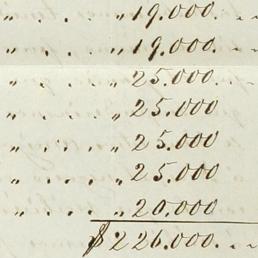 " . . . . " 19.000 . . .
" . . . . " 19.000 . . .
" . . . . " 25.000 . .
" . . . . " 25.000
" . . . . " 25.000
" . . . . " 25.000
" . . . . " 20.000
$ 226.000 . . .